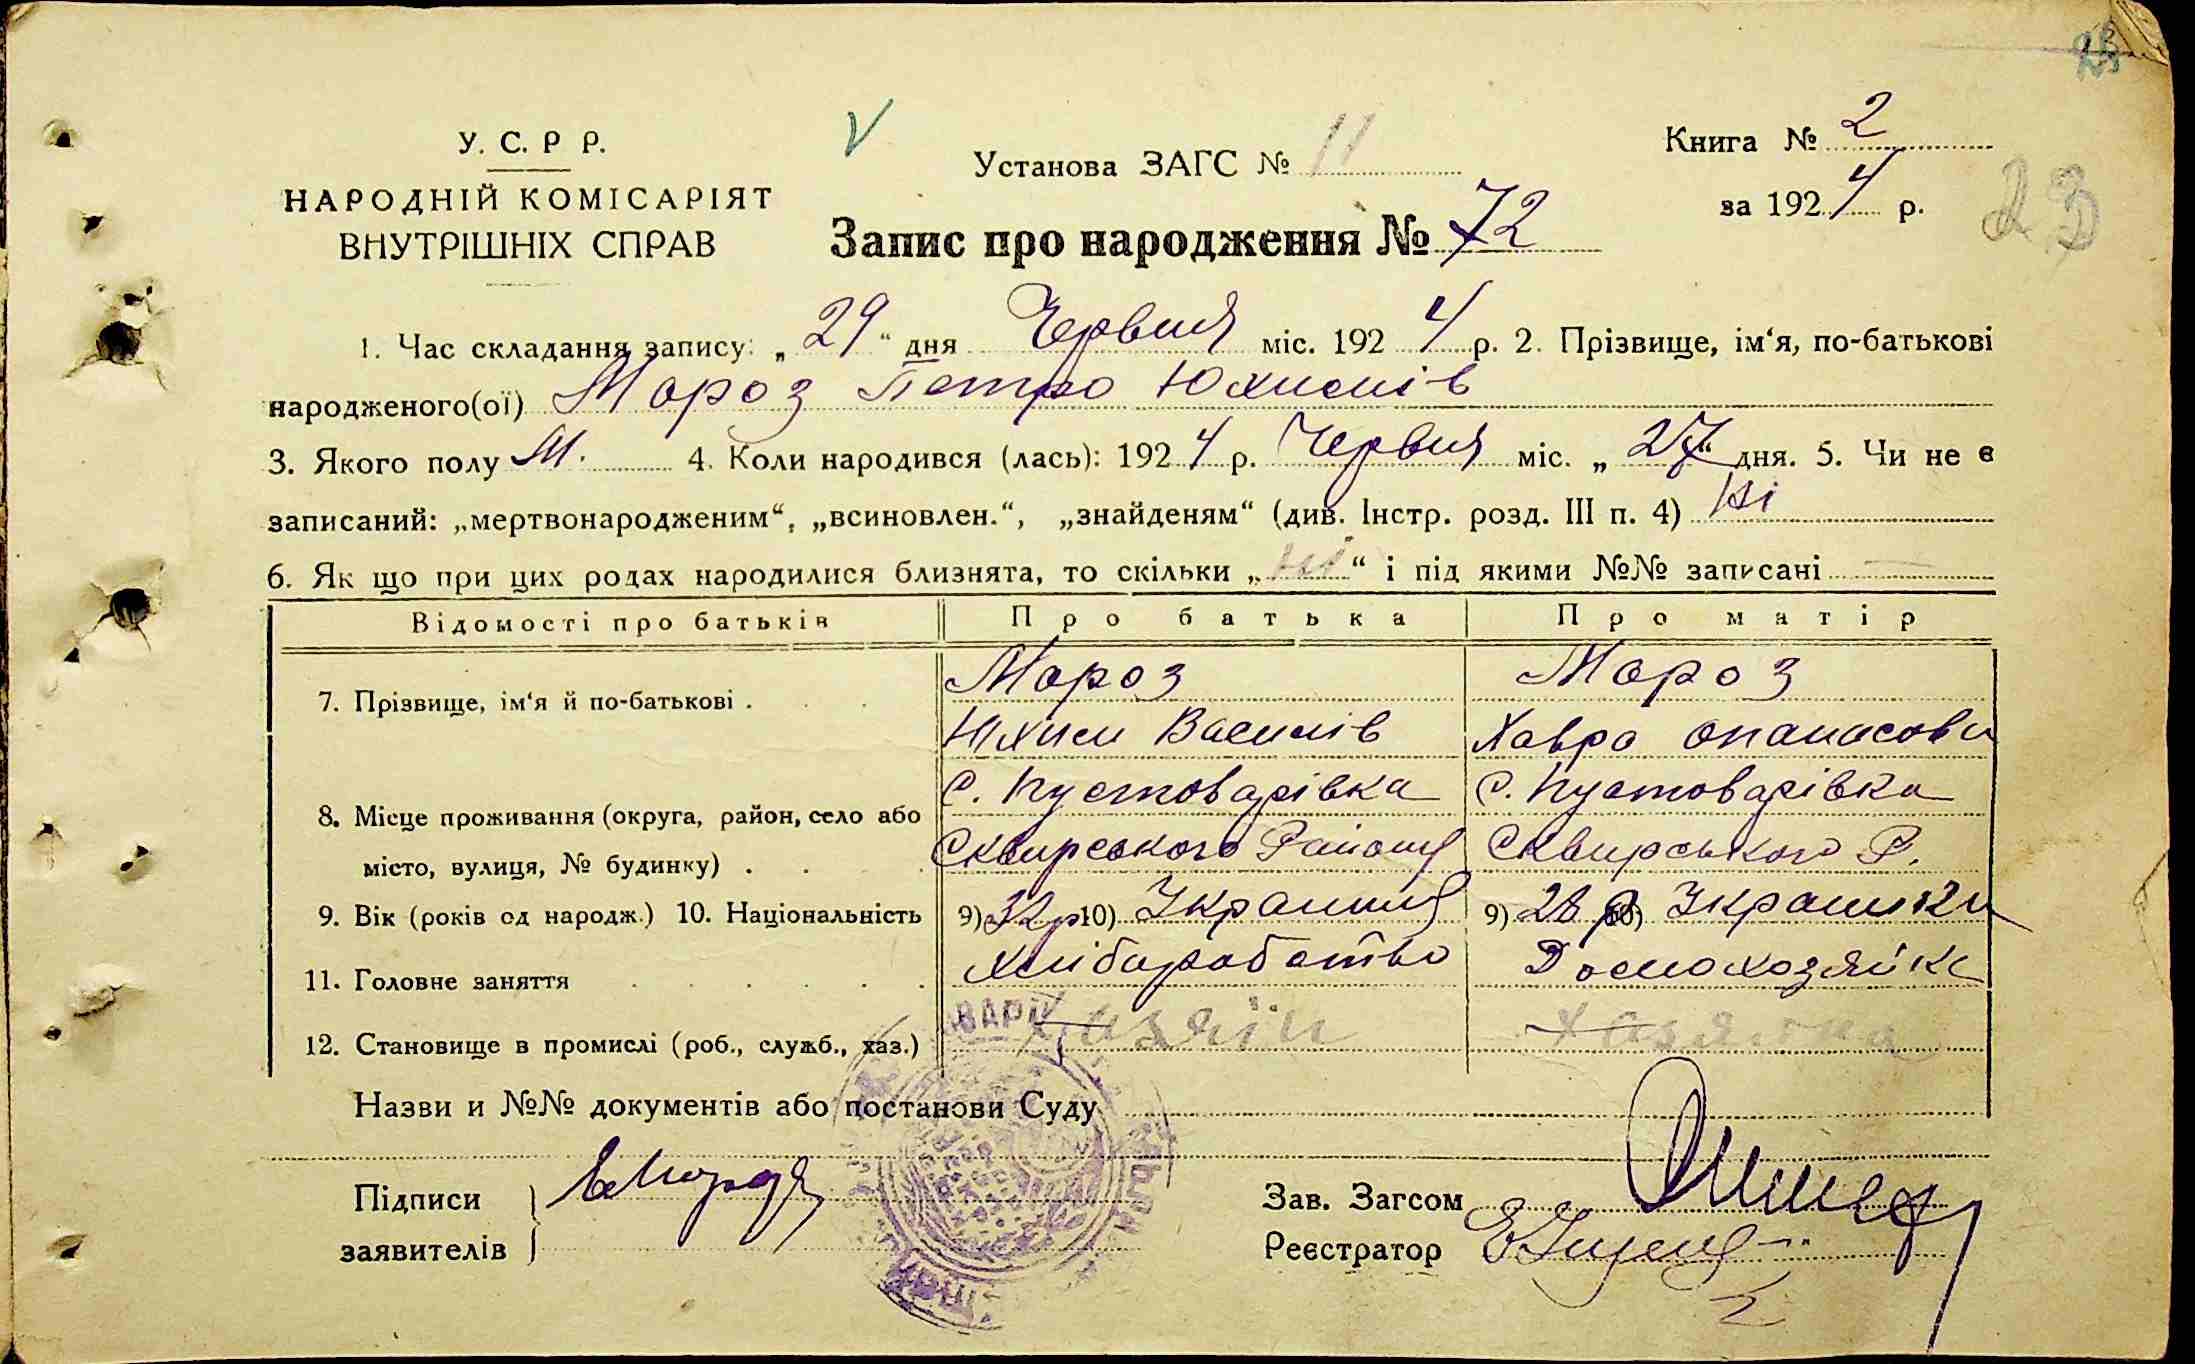 У. С. Р Р.
НАРОДНІЙ КОМІСАРІЯТ
ВНУТРІШНІХ СПРАВ
Установа ЗАГС № 11
Книга № 2
за 1924 р.
23
Запис про народження № 72
1. Час складання запису: „29“ дня Червня міс. 1924 р. 2. Прізвище, ім‘я, по-батькові
народженого(ої) Мороз Петро Юхимів
3. Якого полу М. 4. Коли народився (лась): 1924 р. Червня міс. „27“ дня. 5. Чи не є
записаний: „мертвонародженим“, „всиновлен.“, „знайденям“ (див. Інстр. розд. III п. 4) Ні
6. Як що при цих родах народилися близнята, то скільки „ні“ і під якими №№ записані —
Відомості про батьків Про батька Про матір
7. Прізвище, ім‘я й по-батькові . Мороз Мороз
Юхим Василів Хавра Опанасова
С. Пустоварівка С. Пустоварівка
8. Місце проживання (округа, район, село або
місто, вулиця, № будинку) . Сквирського Району Сквирського Р.
9. Вік (років од народж.) 10. Національність 9) 32 р 10) Українець 9) 28 р 10) Українка
11. Головне заняття Хліборобство Домохозяйка
12. Становище в промислі (роб., служб., хаз.) Хазяїн Хазяйка
Назви и №№ документів або постанови Суду
Підписи
заявителів
Зав. Загсом
Реєстратор